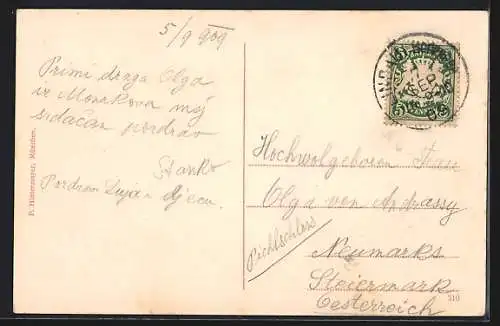 5/9 909
Primi draga Olga
iz Monakova moj
srdačan pozdrav
Stanko
Pozdravi Luja i djecu.
Hochwolgeboren Frau
Olga von Andrassy
Pichlschloss
Neumarkt
Steiermark
Oesterreich
P. Hintermayer, München.
210
5
SEP